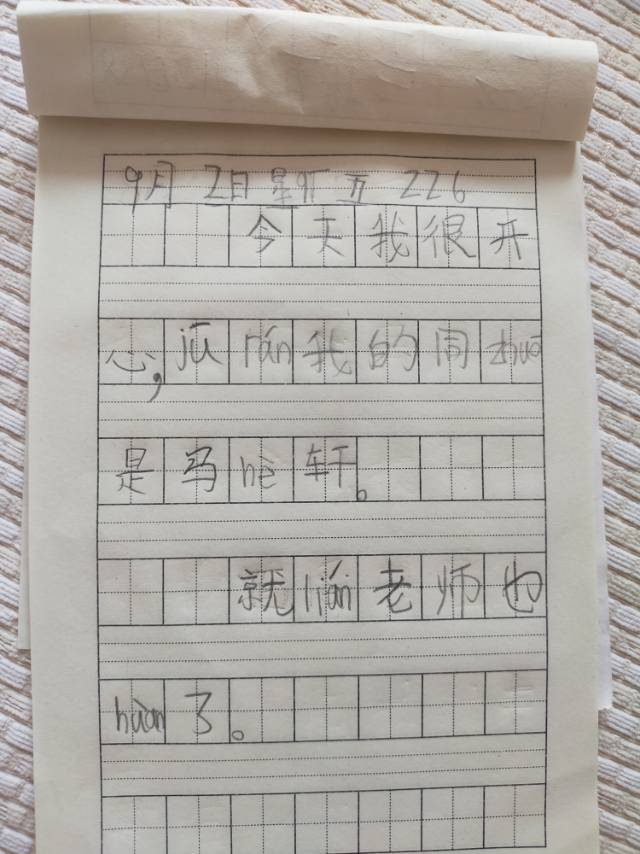 9月2日星期五 226
今天我很开
心，jū rán我的同zhuō
是马hè轩。
就lián老师也
huàn了。